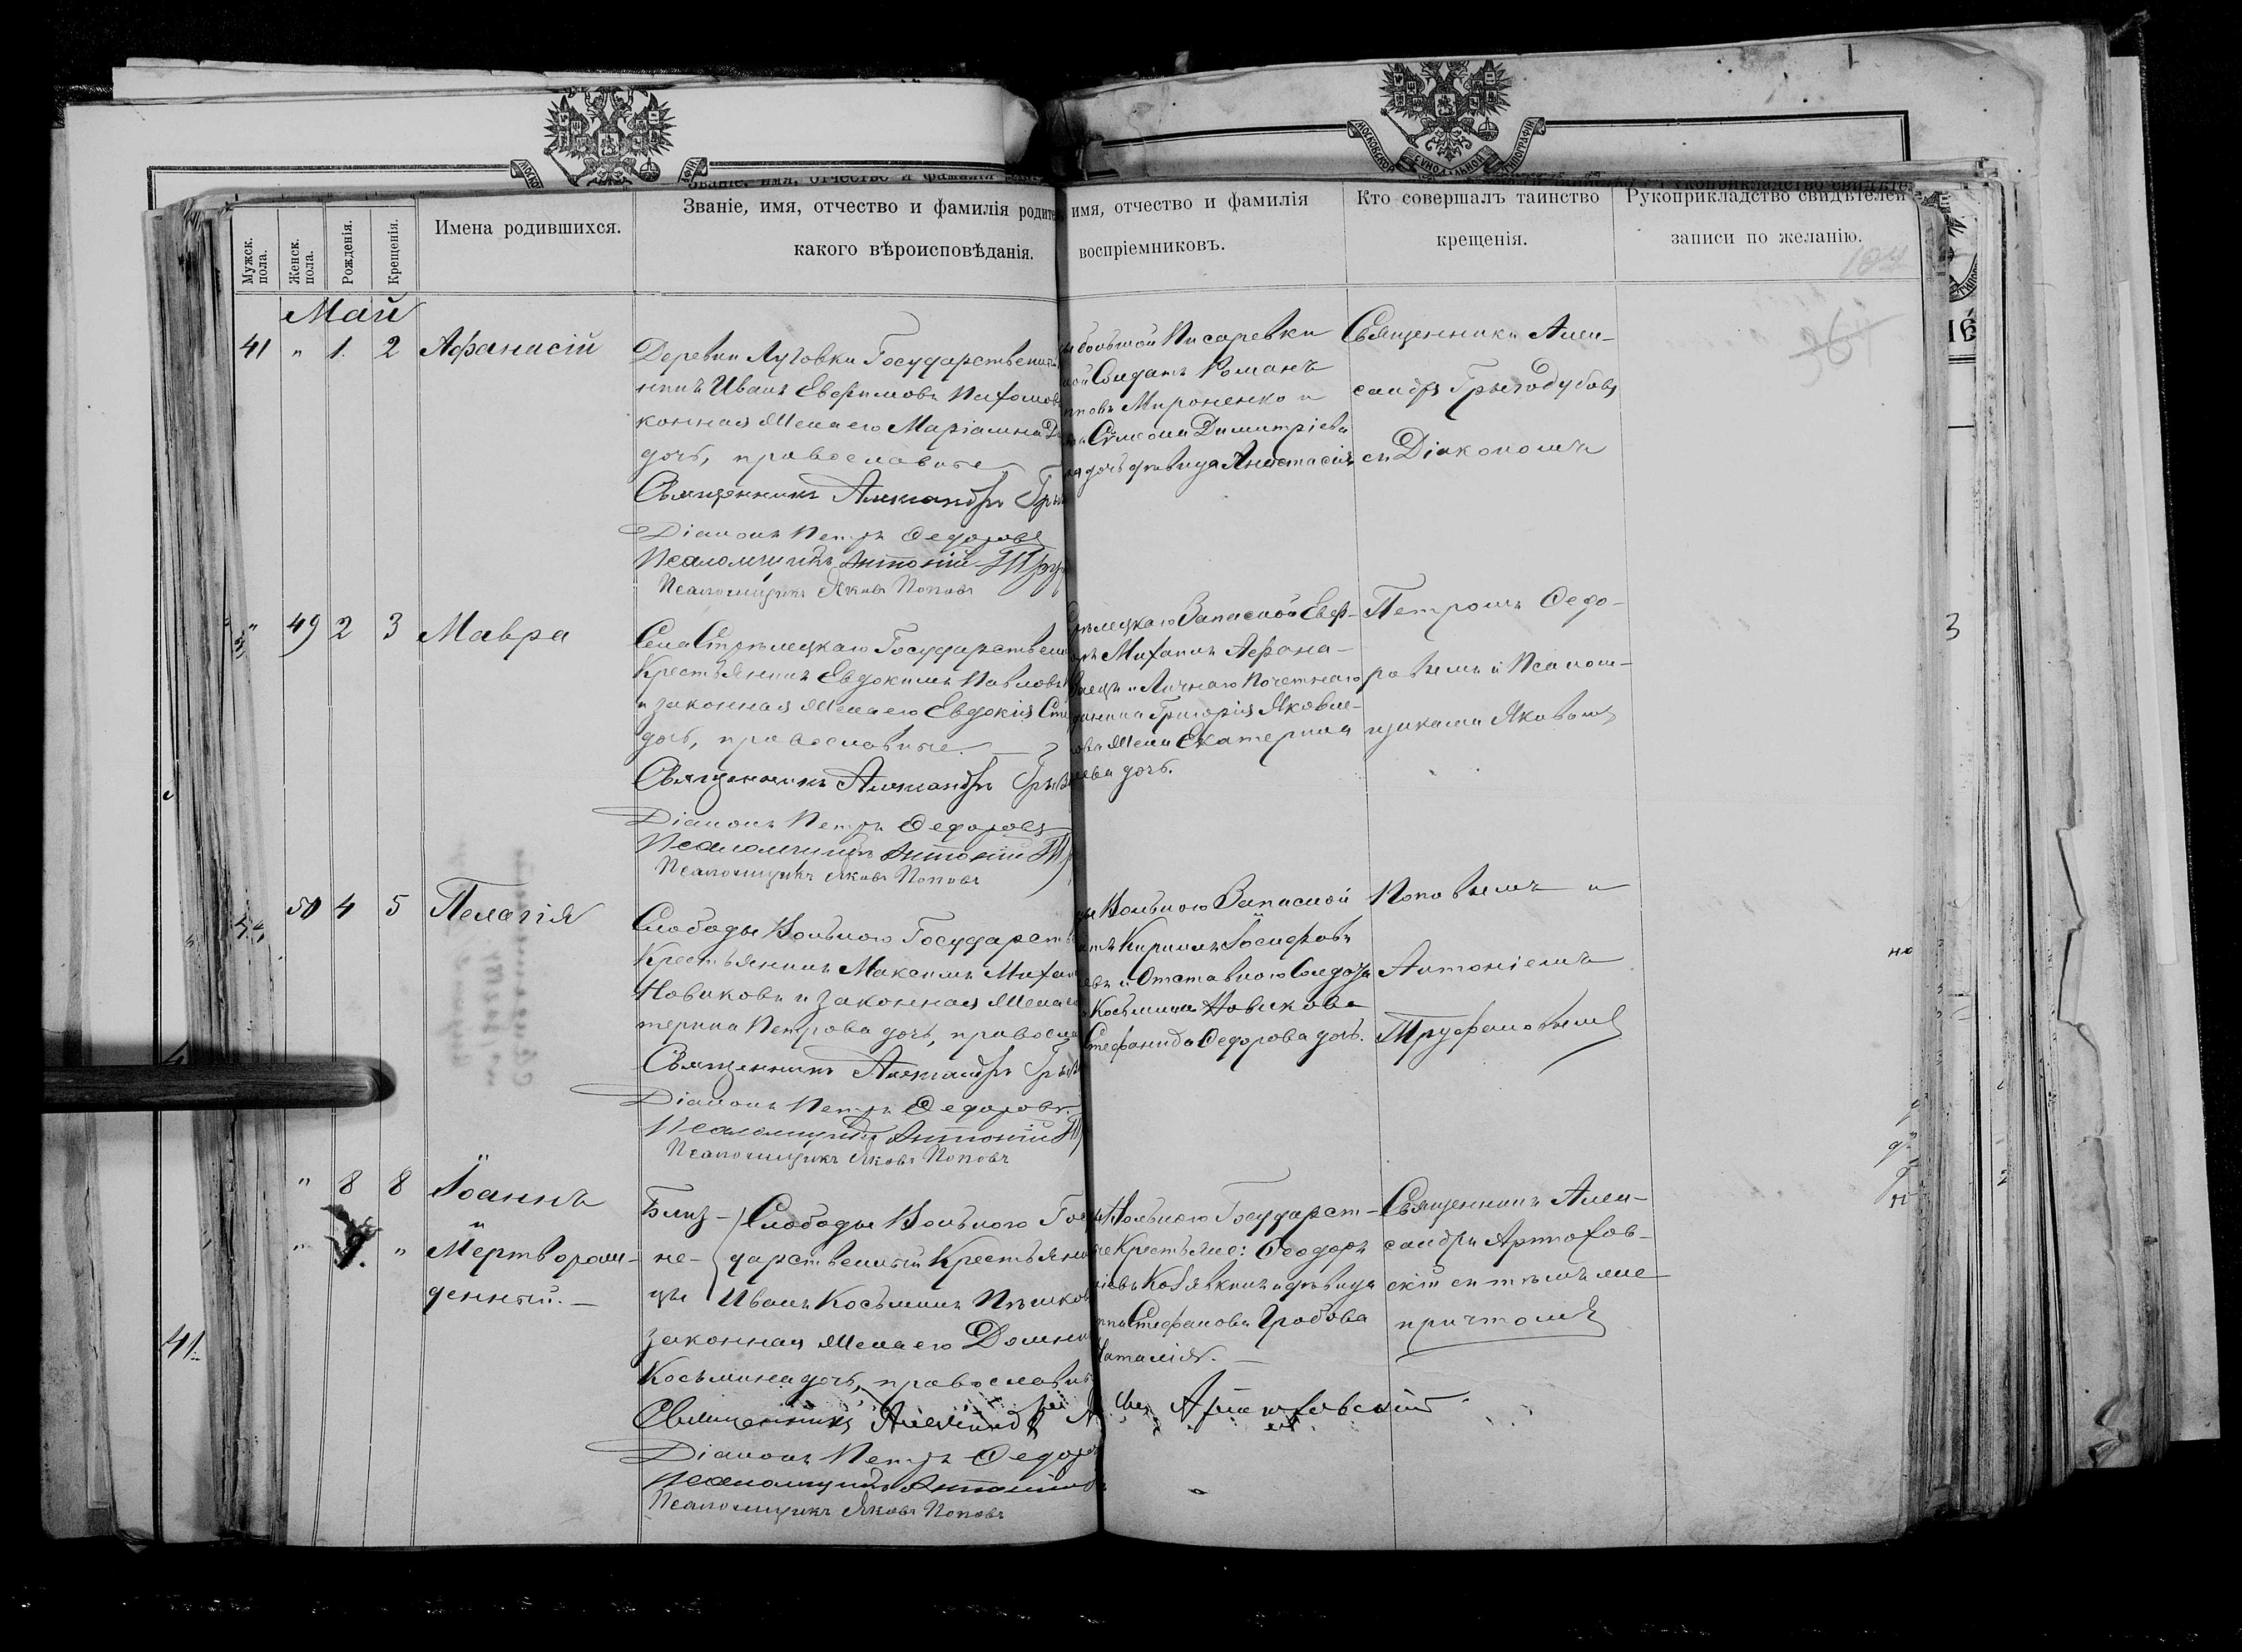 МОСКОВСКОЙ СѴНОДАЛЬНОЙ ТИПОГРАФІИ
Мужск. пола.
Женск. пола.
Рожденія.
Крещенія.
Имена родившихся.
Званіе, имя, отчество и фамилія родите
какого вѣроисповѣданія.
имя, отчество и фамилія
воспріемниковъ.
Кто совершалъ таинство
крещенія.
Рукоприкладство свидѣтелей
записи по желанію.
104
Май
41 " 1. 2 Афанасій
Деревни Луговки Государствен
нинъ Иванъ Евфимовъ Пахомов
конная жена его Маріамна Д
дочь, православные
Священникъ Александръ Гры
Діаконъ Петръ Федоровъ
Псаломщикъ Антоній Тру
Псаломщикъ Яковъ Поповъ
большой Писаревки
ной Солдатъ Романъ
повъ Мироненко и
Сѵмеона Димитріева
дочь дѣвица Анастасія
Священникъ Алек-
сандръ Грызодубовъ
съ Діакономъ
" 49 2 3 Мавра
Села Стрѣлецкаго Государствен
Крестьянинъ Евдокимъ Павловъ
и законная жена его Евдокія Сте
дочь, православные. —
Священникъ Александръ Грызо
Діаконъ Петръ Федоровъ
Псаломщикъ Антоній Т
Псаломщикъ Яковъ Поповъ
рѣлецкаго Запасной Евф-
Михаилъ Афана-
и Личнаго Почетнаго
данина Григорія Яковле-
ова жена Екатерина
ева дочь.
Петромъ Федо-
ровымъ и Псалом-
щиками Яковомъ
50 4 5 Пелагія
Слободы Вольного Государств
Крестьянинъ Максимъ Миха
Новиковъ и законная жена е
терина Петрова дочь, правосла
Священникъ Александръ Грыз
Діаконъ Петръ Федоровъ.
Псаломщикъ Антоній Т
Псаломщикъ Яковъ Поповъ
Вольного Запасной
атъ Кириллъ Іосифовъ
евъ и Отставного Солдата
Косьмина Новикова
Стефанида Федорова дочь.
Поповымъ и
Антоніемъ
Труфановымъ
" 8 8 Іоаннъ
" " Мертворож-
денный. —
Близ-
не-
цы
Слободы Вольного Госу
дарственный Крестьяни
Иванъ Косьминъ Пѣшков
законная жена его Домни
Косьмина дочь, православны
Священникъ Александръ А
Діаконъ Петръ Федоро
Псаломщикъ Антоній
Псаломщикъ Яковъ Поповъ
Вольного Государст-
Крестьяне: Феодоръ
ріевъ Кобявкинъ и дѣвица
Стефанова Гробова
Наталія. —
Артюховскій
Священникъ Алек-
сандръ Артюхов-
скій съ тѣмъ же
причтомъ
41